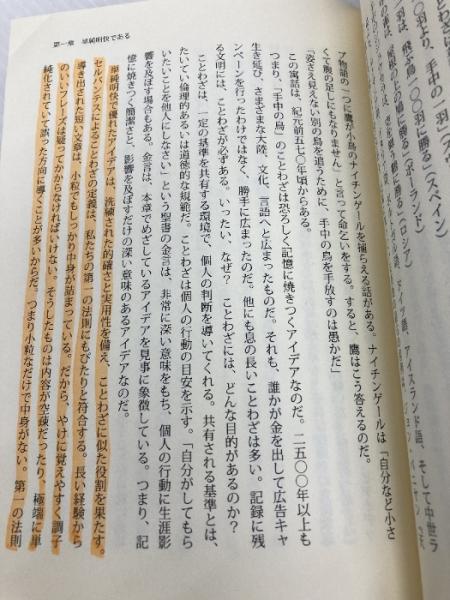 二羽より、「手中の一羽」（スペイン）
飛ぶ鳥一〇〇羽に勝る」（ポーランド）
に勝る」（ロシア）
ドイツ語、アイスランド語、そして中世ラ
第一章　単純明快である
プ物語の一つに鷹が小鳥のナイチンゲールを捕らえる話がある。ナイチンゲールは「自分など小さ
くて腹の足しにもなりません」と言って命乞いをする。すると、鷹はこう答えるのだ。
「姿さえ見えない別の鳥を追うために、手中の鳥を手放すのは愚かだ」
この寓話は、紀元前五七〇年頃からある。
つまり、「手中の鳥」のことわざは恐ろしく記憶に焼きつくアイデアなのだ。二五〇〇年以上も
生き延び、さまざまな大陸、文化、言語へと広まったものだ。それも、誰かが金を出して広告キャ
ンペーンを行ったわけではなく、勝手に広まったのだ。他にも息の長いことわざは多い。記録に残
る文明には、ことわざが必ずある。いったい、なぜ？　ことわざには、どんな目的があるのか？
ことわざは、一定の基準を共有する環境で、個人の判断を導いてくれる。共有される基準とは、
たいてい倫理的あるいは道徳的な規範だ。ことわざは個人の行動の目安を示す。「自分がしてもら
いたいことを他人にもしなさい」という聖書の金言は、非常に深い意味をもち、個人の行動に生涯影
響を及ぼす場合もある。金言は、本章でめざしているアイデアを見事に象徴している。つまり、記
憶に焼きつく簡潔さと、影響を及ぼすだけの深い意味のあるアイデアなのだ。
単純明快で優れたアイデアは、洗練された的確さと実用性を備え、ことわざに似た役割を果たす。
セルバンテスによることわざの定義は、私たちの第一の法則にもぴたりと符合する。長い経験から
導き出された短い文章は、小粒でもしっかり中身が詰まっている。だから、やけに覚えやすく調子
のいいフレーズは疑ってかからなければいけない。そうしたものは内容が空疎だったり、極端に単
純化されていて誤った方向に導くことが多いからだ。つまり小粒なだけで中身がない。第一の法則